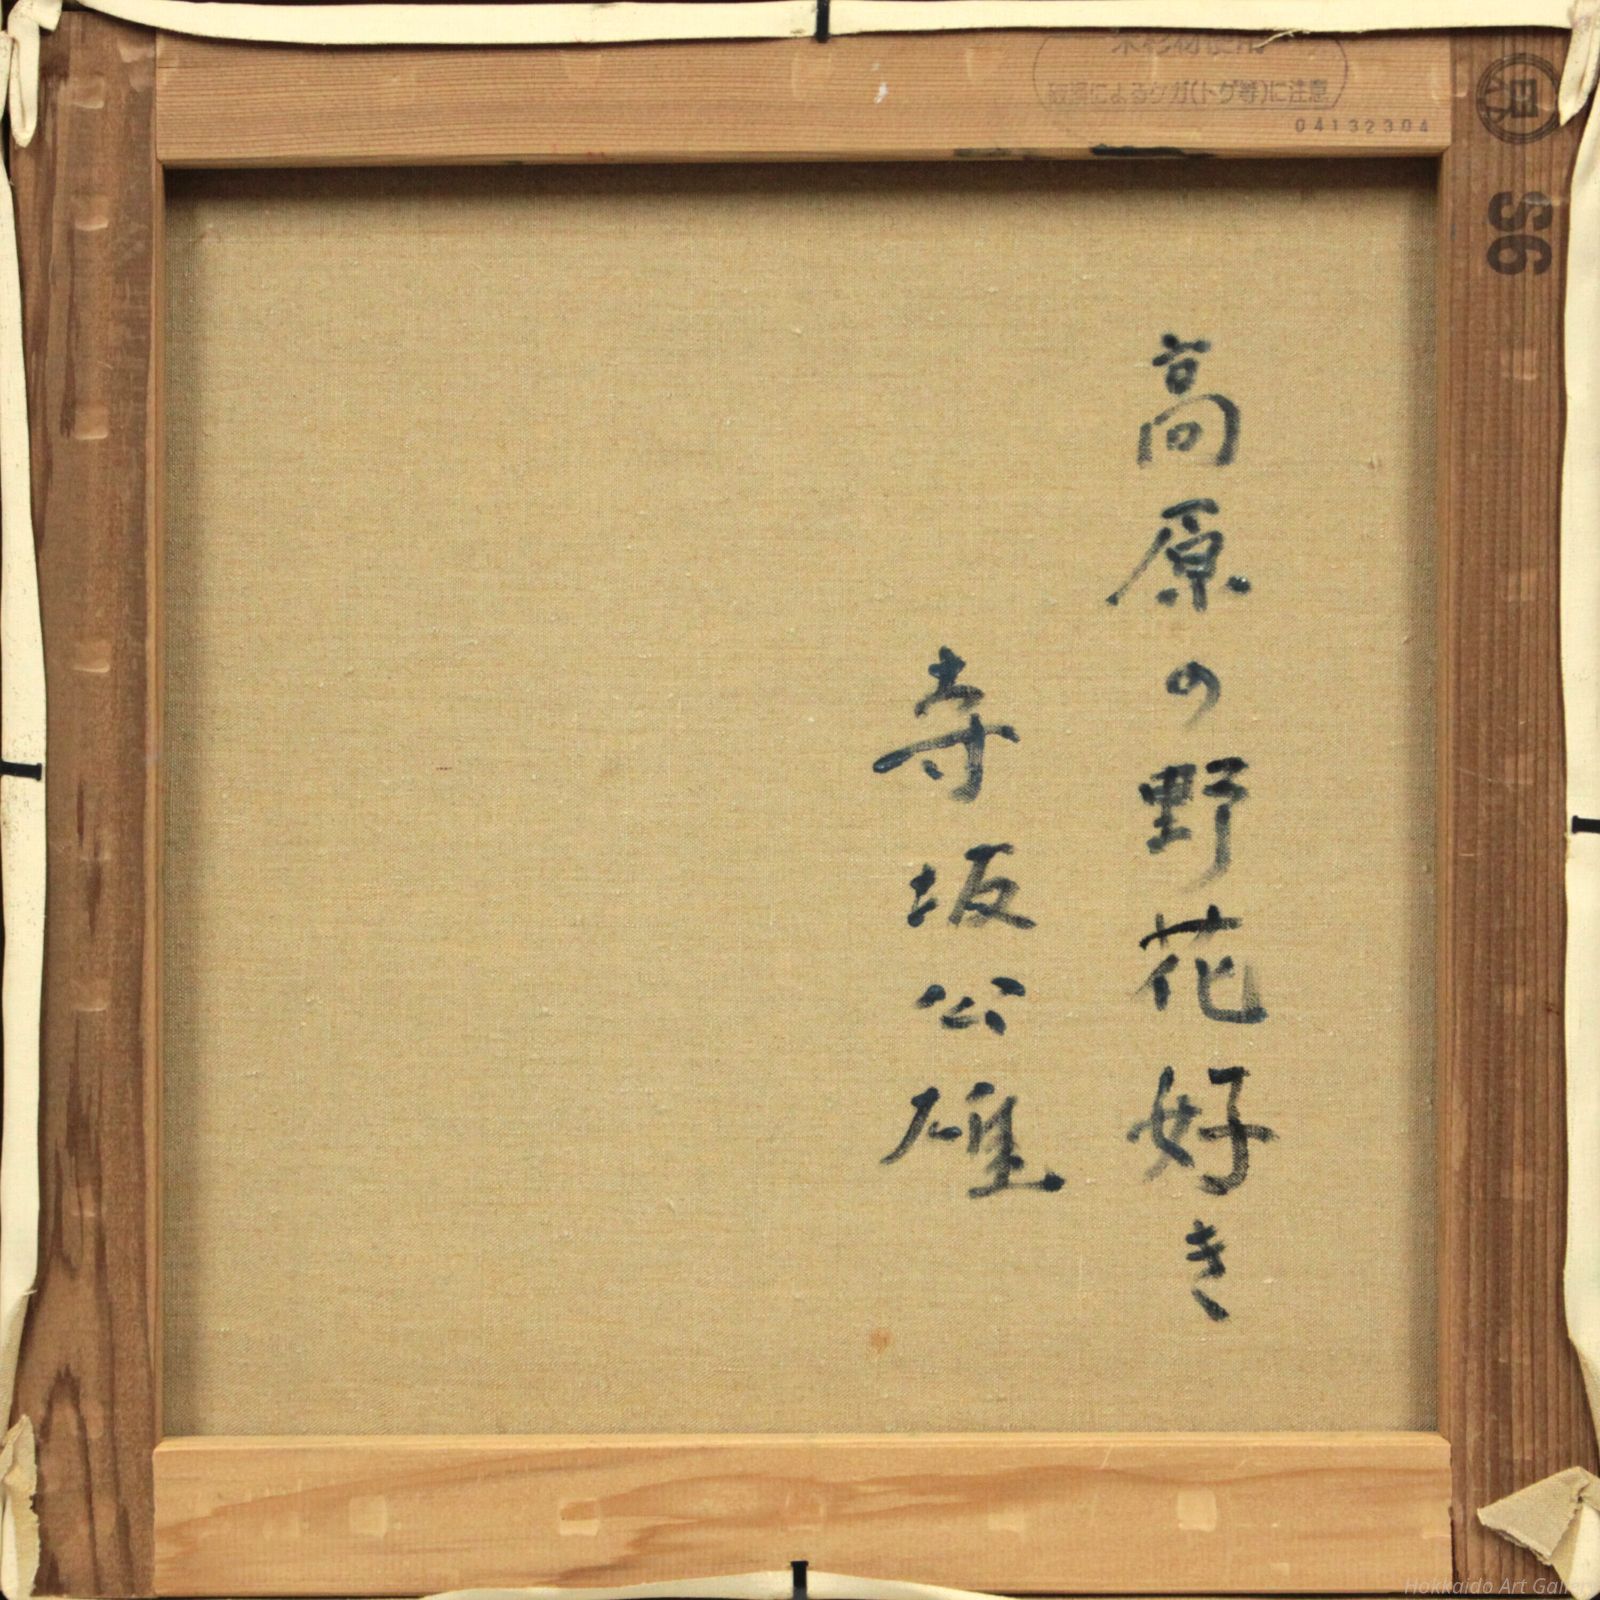 高原の野花好き
寺坂公雄
破損によるケガ(トゲ等)に注意
04132304
S6
Hokkaido Art Gallery